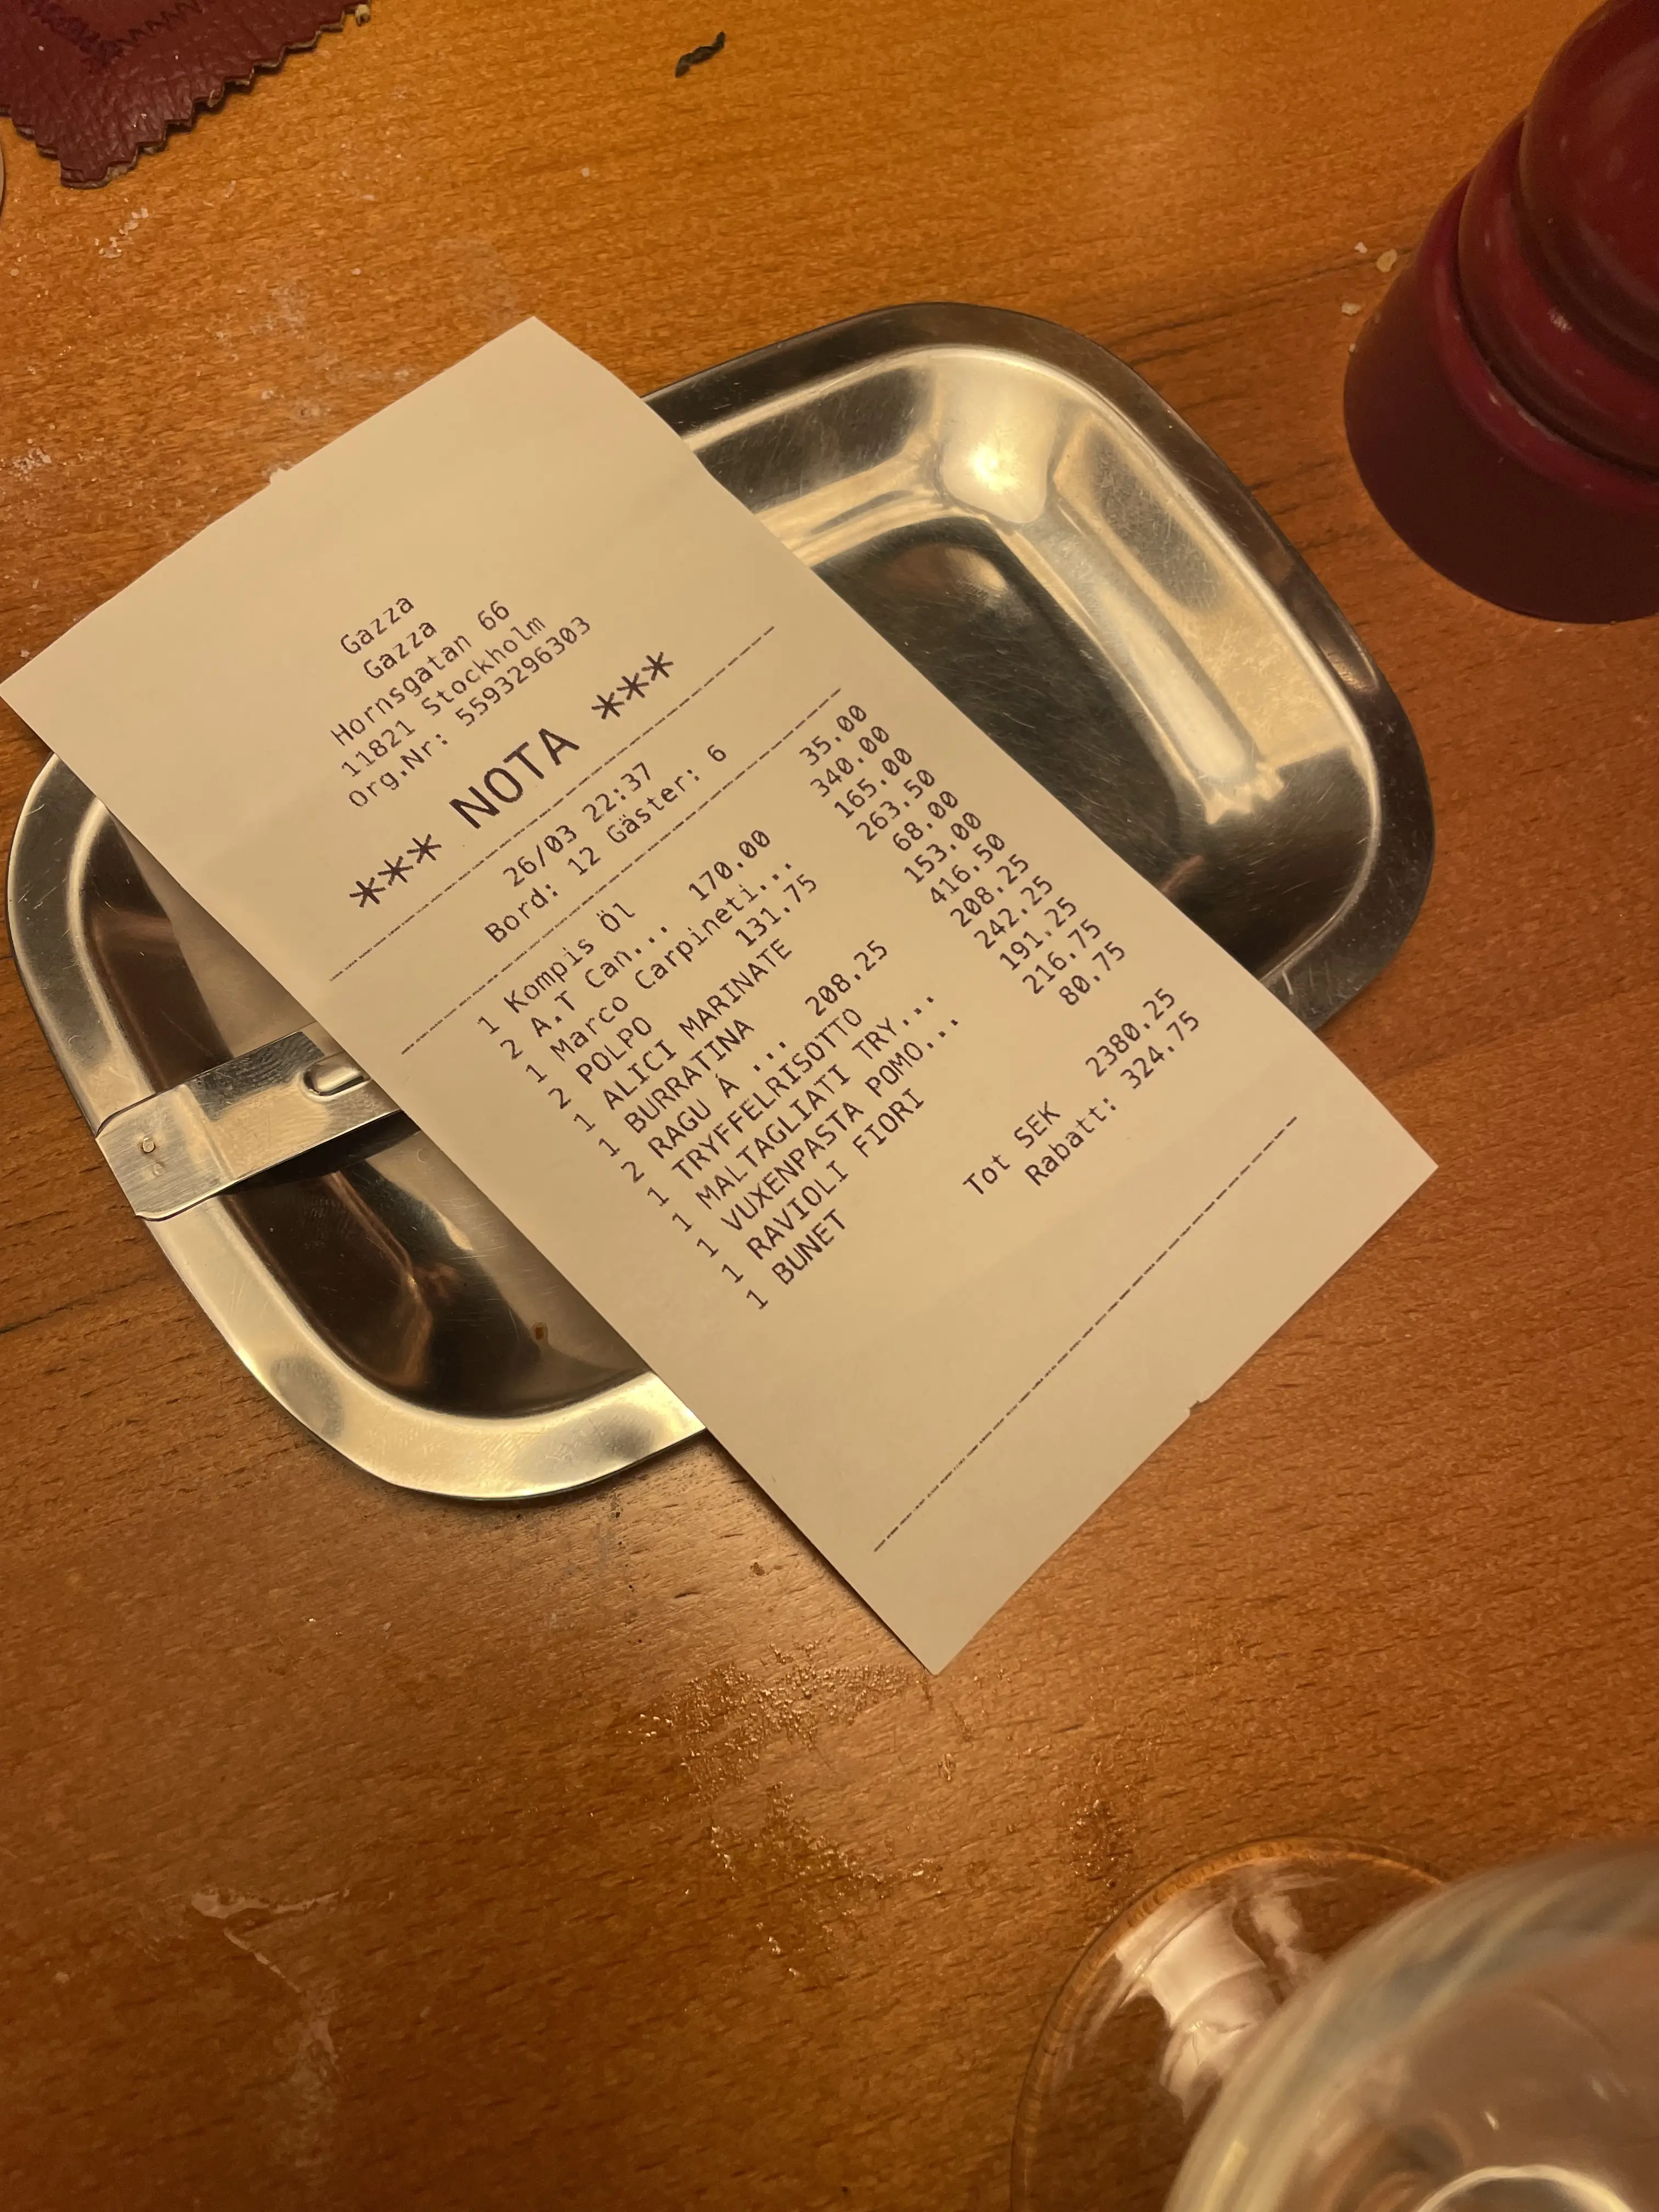 Gazza
Gazza
Hornsgatan 66
11821 Stockholm
Org.Nr: 5593296303
*** NOTA ***
26/03 22:37
Bord: 12 Gäster: 6
1 Kompis Öl 35.00
2 A.T Can... 170.00 340.00
1 Marco Carpineti... 165.00
2 POLPO 131.75 263.50
1 ALICI MARINATE 68.00
1 BURRATINA 153.00
2 RAGU Á ... 208.25 416.50
1 TRYFFELRISOTTO 208.25
1 MALTAGLIATI TRY... 242.25
1 VUXENPASTA POMO... 191.25
1 RAVIOLI FIORI 216.75
1 BUNET 80.75
Tot SEK 2380.25
Rabatt: 324.75